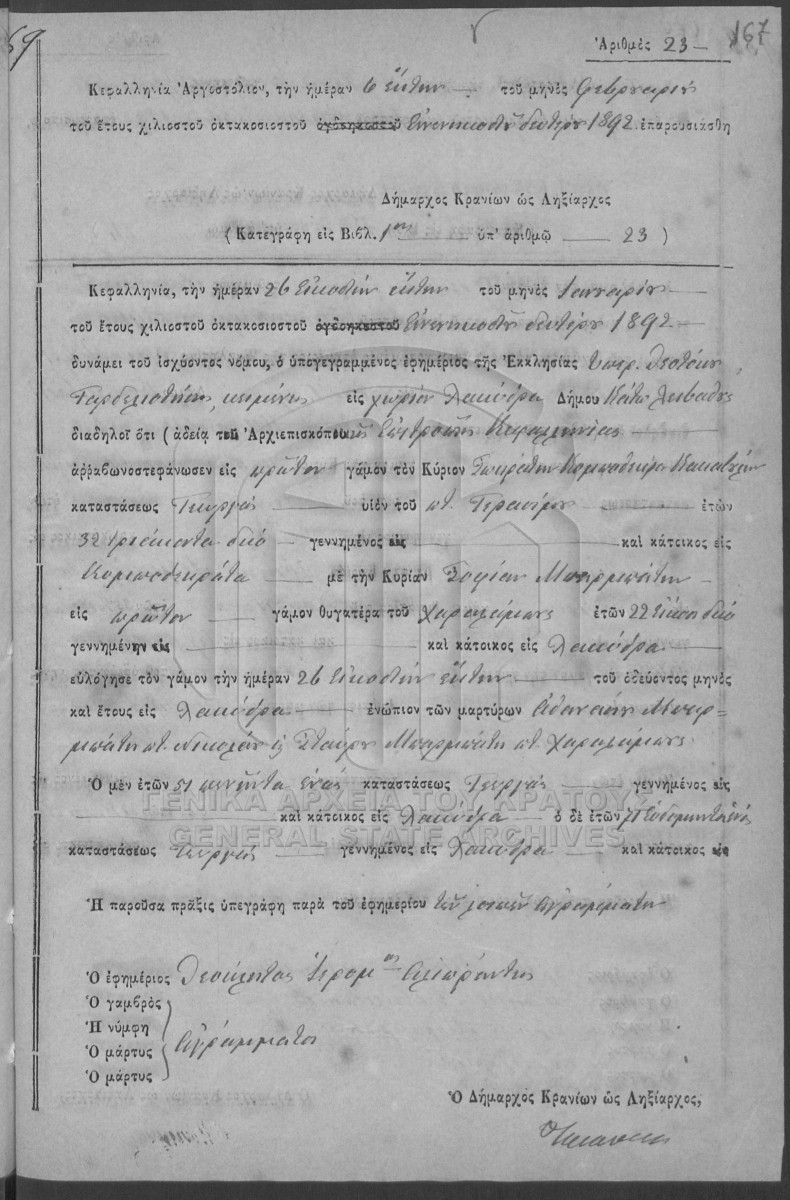 69
Ἀριθμὸς 23 — 167
Κεφαλληνία Ἀργοστόλιον, τὴν ἡμέραν 6 ἕκτην τοῦ μηνὸς Φεβρουαρίου
τοῦ ἔτους χιλιοστοῦ ὀκτακοσιοστοῦ ὀγδοηκοστοῦ Ἐννενηκοστοῦ δευτέρου 1892 ἐπαρουσιάσθη
Δήμαρχος Κρανίων ὡς Ληξίαρχος
(Κατεγράφη εἰς Βιβλ. 1ον ὑπ' ἀριθμῷ 23)
Κεφαλληνία, τὴν ἡμέραν 26 Εἰκοστὴν ἕκτην τοῦ μηνὸς Ἰανουαρίου
τοῦ ἔτους χιλιοστοῦ ὀκτακοσιοστοῦ ὀγδοηκοστοῦ Ἐννενηκοστοῦ δευτέρου 1892
δυνάμει τοῦ ἰσχύοντος νόμου, ὁ ὑπογεγραμμένος ἐφημέριος τῆς Ἐκκλησίας Ὑπερ. Θεοτόκου
κειμένης εἰς χωρίον Λακύθρα Δήμου Κάτω Λειβαθοῦς
διαδηλοῖ ὅτι (ἀδείᾳ τοῦ Ἀρχιεπισκόπου τῆς Ἐπιτροπῆς Κεφαλληνίας
ἀρραβωνοστεφάνωσεν εἰς πρῶτον γάμον τὸν Κύριον Κομποθέκρα
καταστάσεως Γεωργὸς υἱὸν τοῦ ποτ. Γερασίμου ἐτῶν
32 τριάκοντα δύο γεννημένος εἰς καὶ κάτοικος εἰς
Κομποθεκράτα μὲ τὴν Κυρίαν Σοφίαν Μπαρμπάτη
εἰς πρῶτον γάμον θυγατέρα τοῦ Χαραλάμπους ἐτῶν 22 Εἴκοσι δύο
γεννημένην εἰς καὶ κάτοικος εἰς Λακύθρα
εὐλόγησε τὸν γάμον τὴν ἡμέραν 26 Εἰκοστὴν ἕκτην τοῦ ὁδεύοντος μηνὸς
καὶ ἔτους εἰς Λακύθρα ἐνώπιον τῶν μαρτύρων Ἀθανασίου Μπαρ=
μπάτη ποτ. Νικολάου & Σταύρου Μπαρμπάτη ποτ. Χαραλάμπους
Ὁ μὲν ἐτῶν 51 πενῆντα ἑνὸς καταστάσεως Γεωργὸς γεννημένος εἰς
καὶ κάτοικος εἰς Λακύθρα ὁ δὲ ἐτῶν 71 Ἑβδομηνταενὸς
καταστάσεως Γεωργὸς γεννημένος εἰς Λακύθρα καὶ κάτοικος εἰς
Ἡ παροῦσα πρᾶξις ὑπεγράφη παρὰ τοῦ ἐφημερίου τῶν λοιπῶν ἀγραμμάτων
Ὁ ἐφημέριος Θεόκλητος Ἱερομ.ος
Ὁ γαμβρὸς
Ἡ νύμφη
Ὁ μάρτυς Ἀγράμματοι
Ὁ μάρτυς
Ὁ Δήμαρχος Κρανίων ὡς Ληξίαρχος,
ΓΕΝΙΚΑ ΑΡΧΕΙΑ ΤΟΥ ΚΡΑΤΟΥΣ
GENERAL STATE ARCHIVES